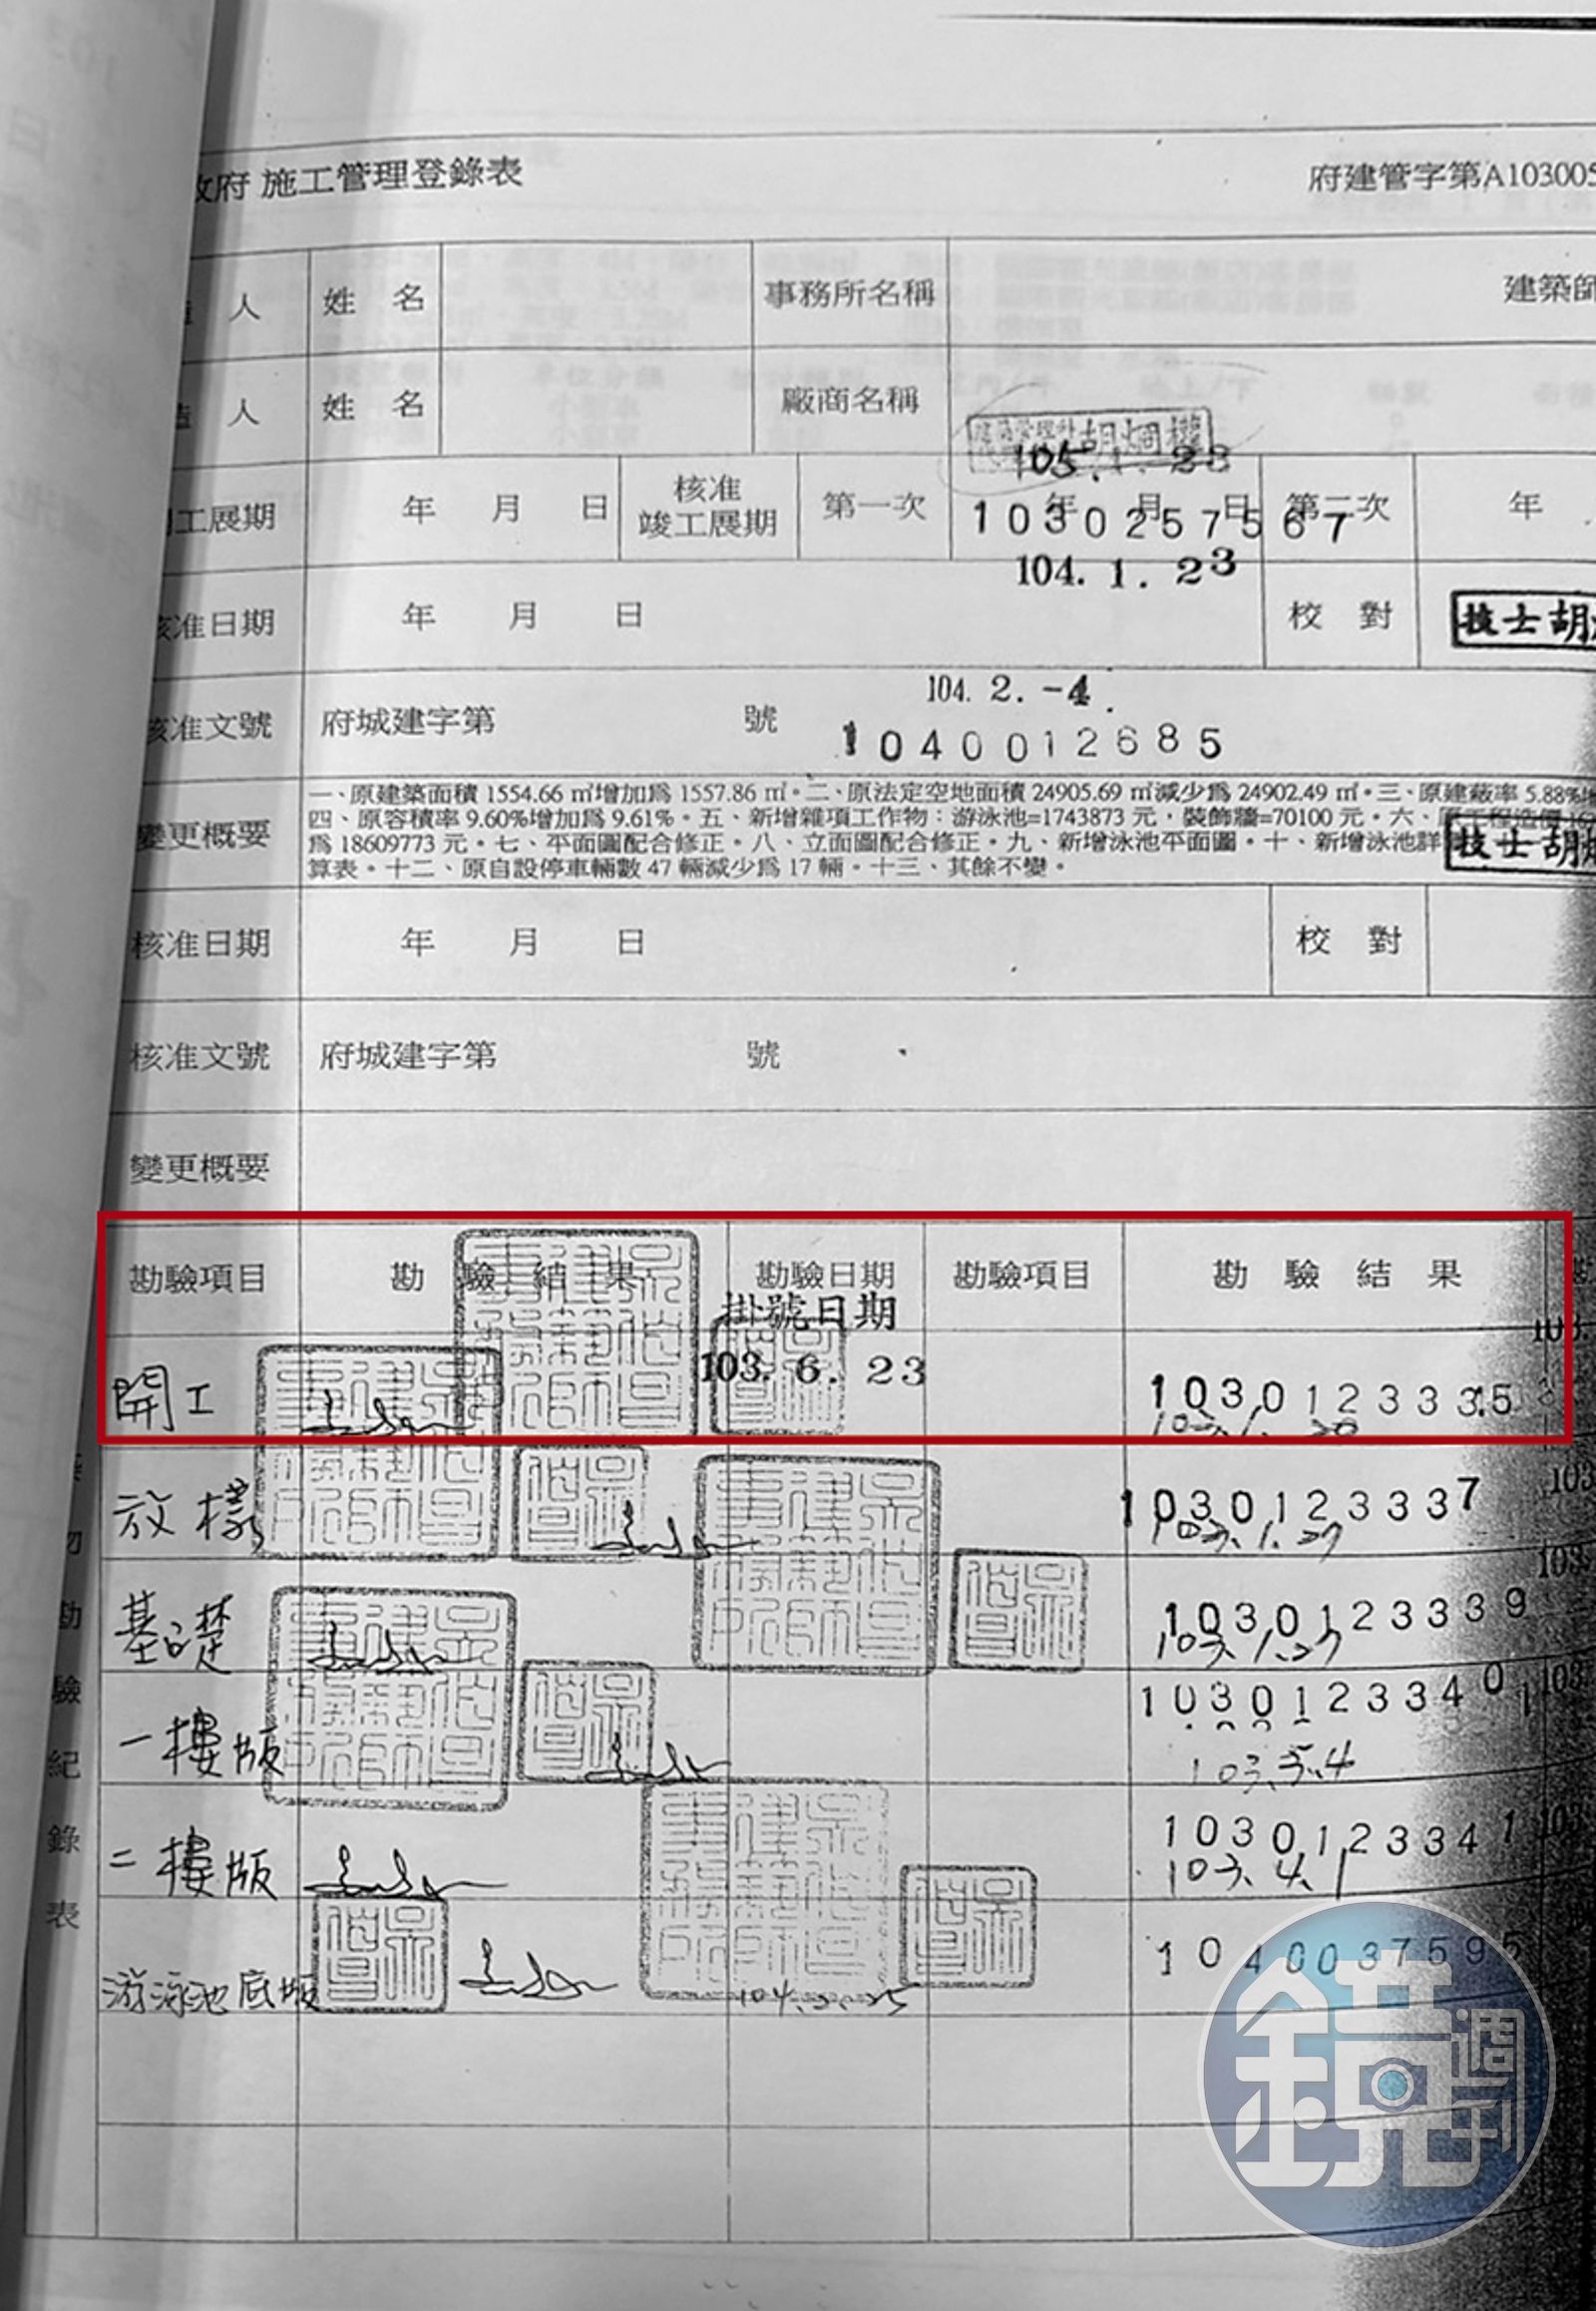 府 施工管理登錄表
府建管字第A103005
人 姓 名 事務所名稱 建築師
人 姓 名 廠商名稱
胡炯權
105.1.23
工展期 年 月 日 核准竣工展期 第一次 年 月 日 第二次 年
10302575667
104.1.23
核准日期 年 月 日 校 對 技士胡
104.2.-4.
核准文號 府城建字第 號 1040012685
變更概要 一、原建築面積 1554.66 ㎡增加為 1557.86 ㎡。二、原法定空地面積 24905.69 ㎡減少為 24902.49 ㎡。三、原建蔽率 5.88%
四、原容積率 9.60%增加為 9.61%。五、新增雜項工作物：游泳池=1743873 元，裝飾牆=70100 元。六、原工程造價
為 18609773 元。七、平面圖配合修正。八、立面圖配合修正。九、新增泳池平面圖。十、新增泳池詳 技士胡
算表。十二、原自設停車輛數 47 輛減少為 17 輛。十三、其餘不變。
核准日期 年 月 日 校 對
核准文號 府城建字第 號
變更概要
勘驗項目 勘 驗 結 果 勘驗日期 勘驗項目 勘 驗 結 果
掛號日期
開工 103.6.23 1030123335
放樣 1030123337
103.1.27
基礎 1030123339
103.1.27
一樓版 1030123340
103.5.4
二樓版 1030123341
103.4.1
游泳池底版 1040037595
勘驗紀錄表
鏡週刊